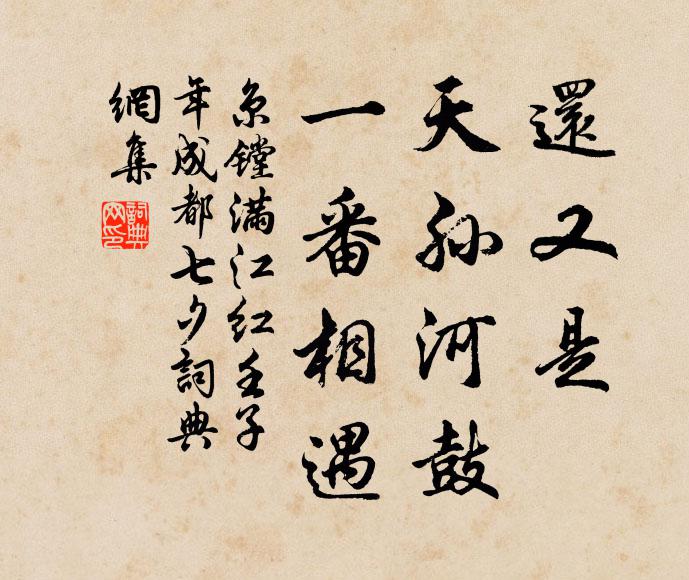 還又是
天孫河鼓
一番相遇
京鏜滿江紅壬子
年成都七夕詞典
網集
詞典網印